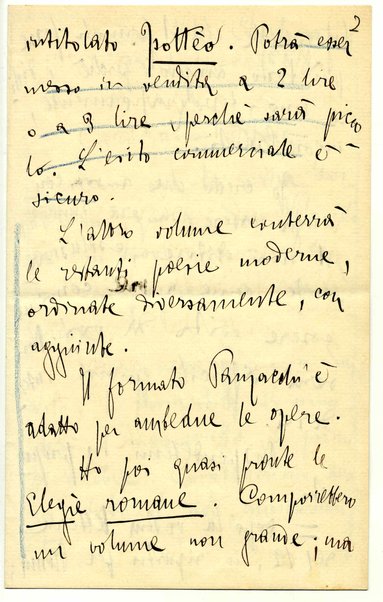 2
intitolato Isottèo. Potrà esser
messo in vendita a 2 lire
o a 3 lire, perchè sarà picco
lo. L'esito commerciale è
sicuro.
L'altro volume conterrà
le restanti poesie moderne,
ordinate diversamente, con
aggiunte.
Il formato Panzacchi è
adatto per ambedue le opere.
Ho poi quasi pronte le
Elegie romane. Comporrebbero
un volume non grande; ma